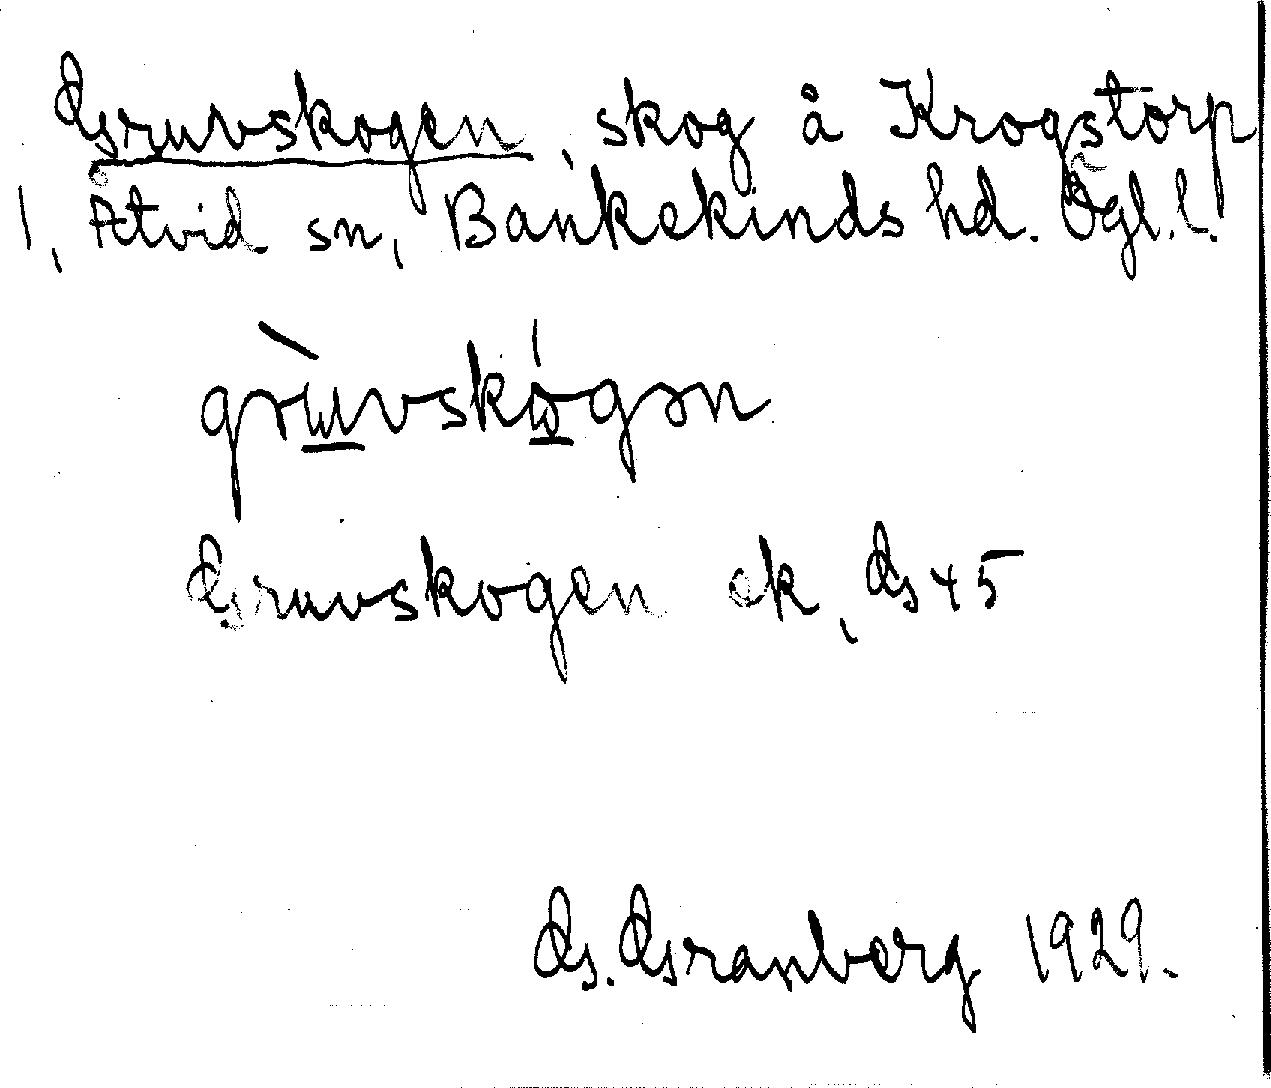 Gruvskogen, skog å Krogstorp
1, Åtvid sn, Bankekinds hd. Ögl.l.
grùvskógən
Gruvskogen ek, G 45
G. Granberg 1929.